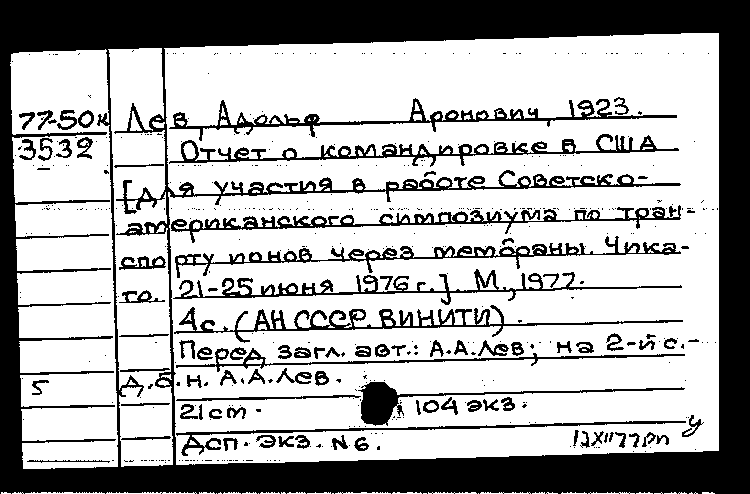 77-50к Лев, Адольф Аронович, 1923.
3532 Отчет о командировке в США
[для участия в работе Советско-
американского симпозиума по тран-
спорту ионов через мембраны. Чика-
го. 21-25 июня 1976 г.]. М., 1977.
4с. (АН СССР. ВИНИТИ).
Перед загл. авт.: А.А.Лев; на 2-й с.-
5 д.б.н. А.А.Лев.
21 см. 104 экз.
Дсп. экз. N 6.
у